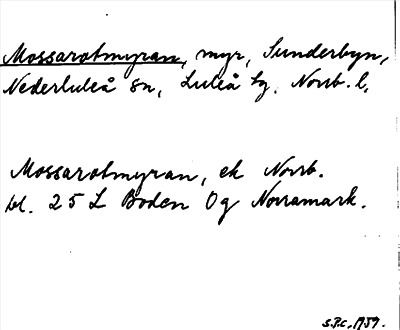 Mossarotmyran, myr, Sunderbyn,
Nederluleå sn, Luleå tg, Norrb. l.
Mossarotmyran, ek Norrb.
bl. 25 L Boden Og Norramark.
S.P.C. 1959.